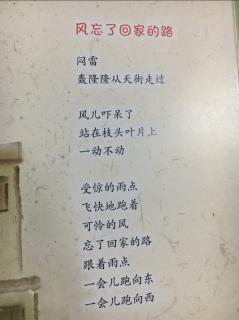 风忘了回家的路
闷雷
轰隆隆从天街走过
风儿吓呆了
站在枝头叶片上
一动不动
受惊的雨点
飞快地跑着
可怜的风
忘了回家的路
跟着雨点
一会儿跑向东
一会儿跑向西